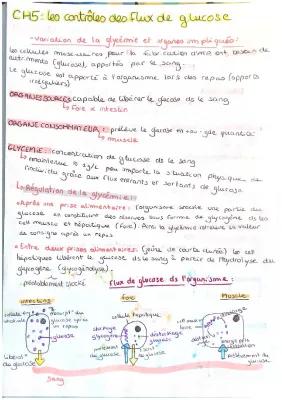 CH5: les contrôles des flux de glucose
-variation de la glycémie et organes impliqués:
les cellules musculaires pour la
besoin de
nutriments (glucose), apportés par le sang.
Le glucose est apporté à l'organisme lors des repas (apports
irréguliers)
ORGANES SOURCES: capable de libérer le glucose ds le sang
↳ Foie x intestin
ORGANE CONSOMMATEUR: prélève le glucose en quantité
↳ muscle
GLYCEMIE: concentration de glucose ds le sang
↳ maintenue g/L peu importe la situation physique de
l'individu grâce aux flux entrants et sortants de glucose
↳ Régulation de la glycémie:
•Après une prise alimentaire: l'organisme stocke une partie du
glucose en constituant des réserves sous forme de glycogène ds les
cell muscle et hépatique (foie). Ainsi la glycémie retrouve sa valeur
de consigne après un repas
•Entre deux prises alimentaires: (jeûne de courte durée) les cell
hépatiques libèrent le glucose ds le sang à partir de l'hydrolyse du
glycogène (glycogénolyse).
préalablement stocké
Flux de glucose ds l'organisme:
intestins
foie
Muscle
cellule
du
glucose après
un repas
glucose
libérat°
du glucose
cellule hépatique
stockage
glycogène
déstockage
glycogène
prélèvement
du glucose
libérat°
du glucose
stockage
prélèvement
du glucose
sang